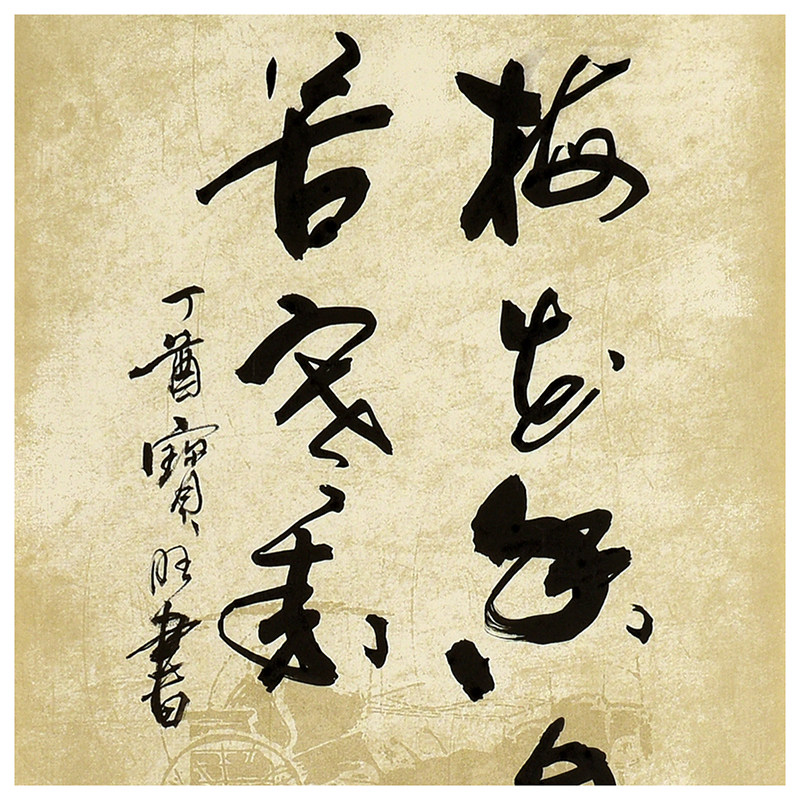 梅花香自
苦寒来
丁酉寶旺書